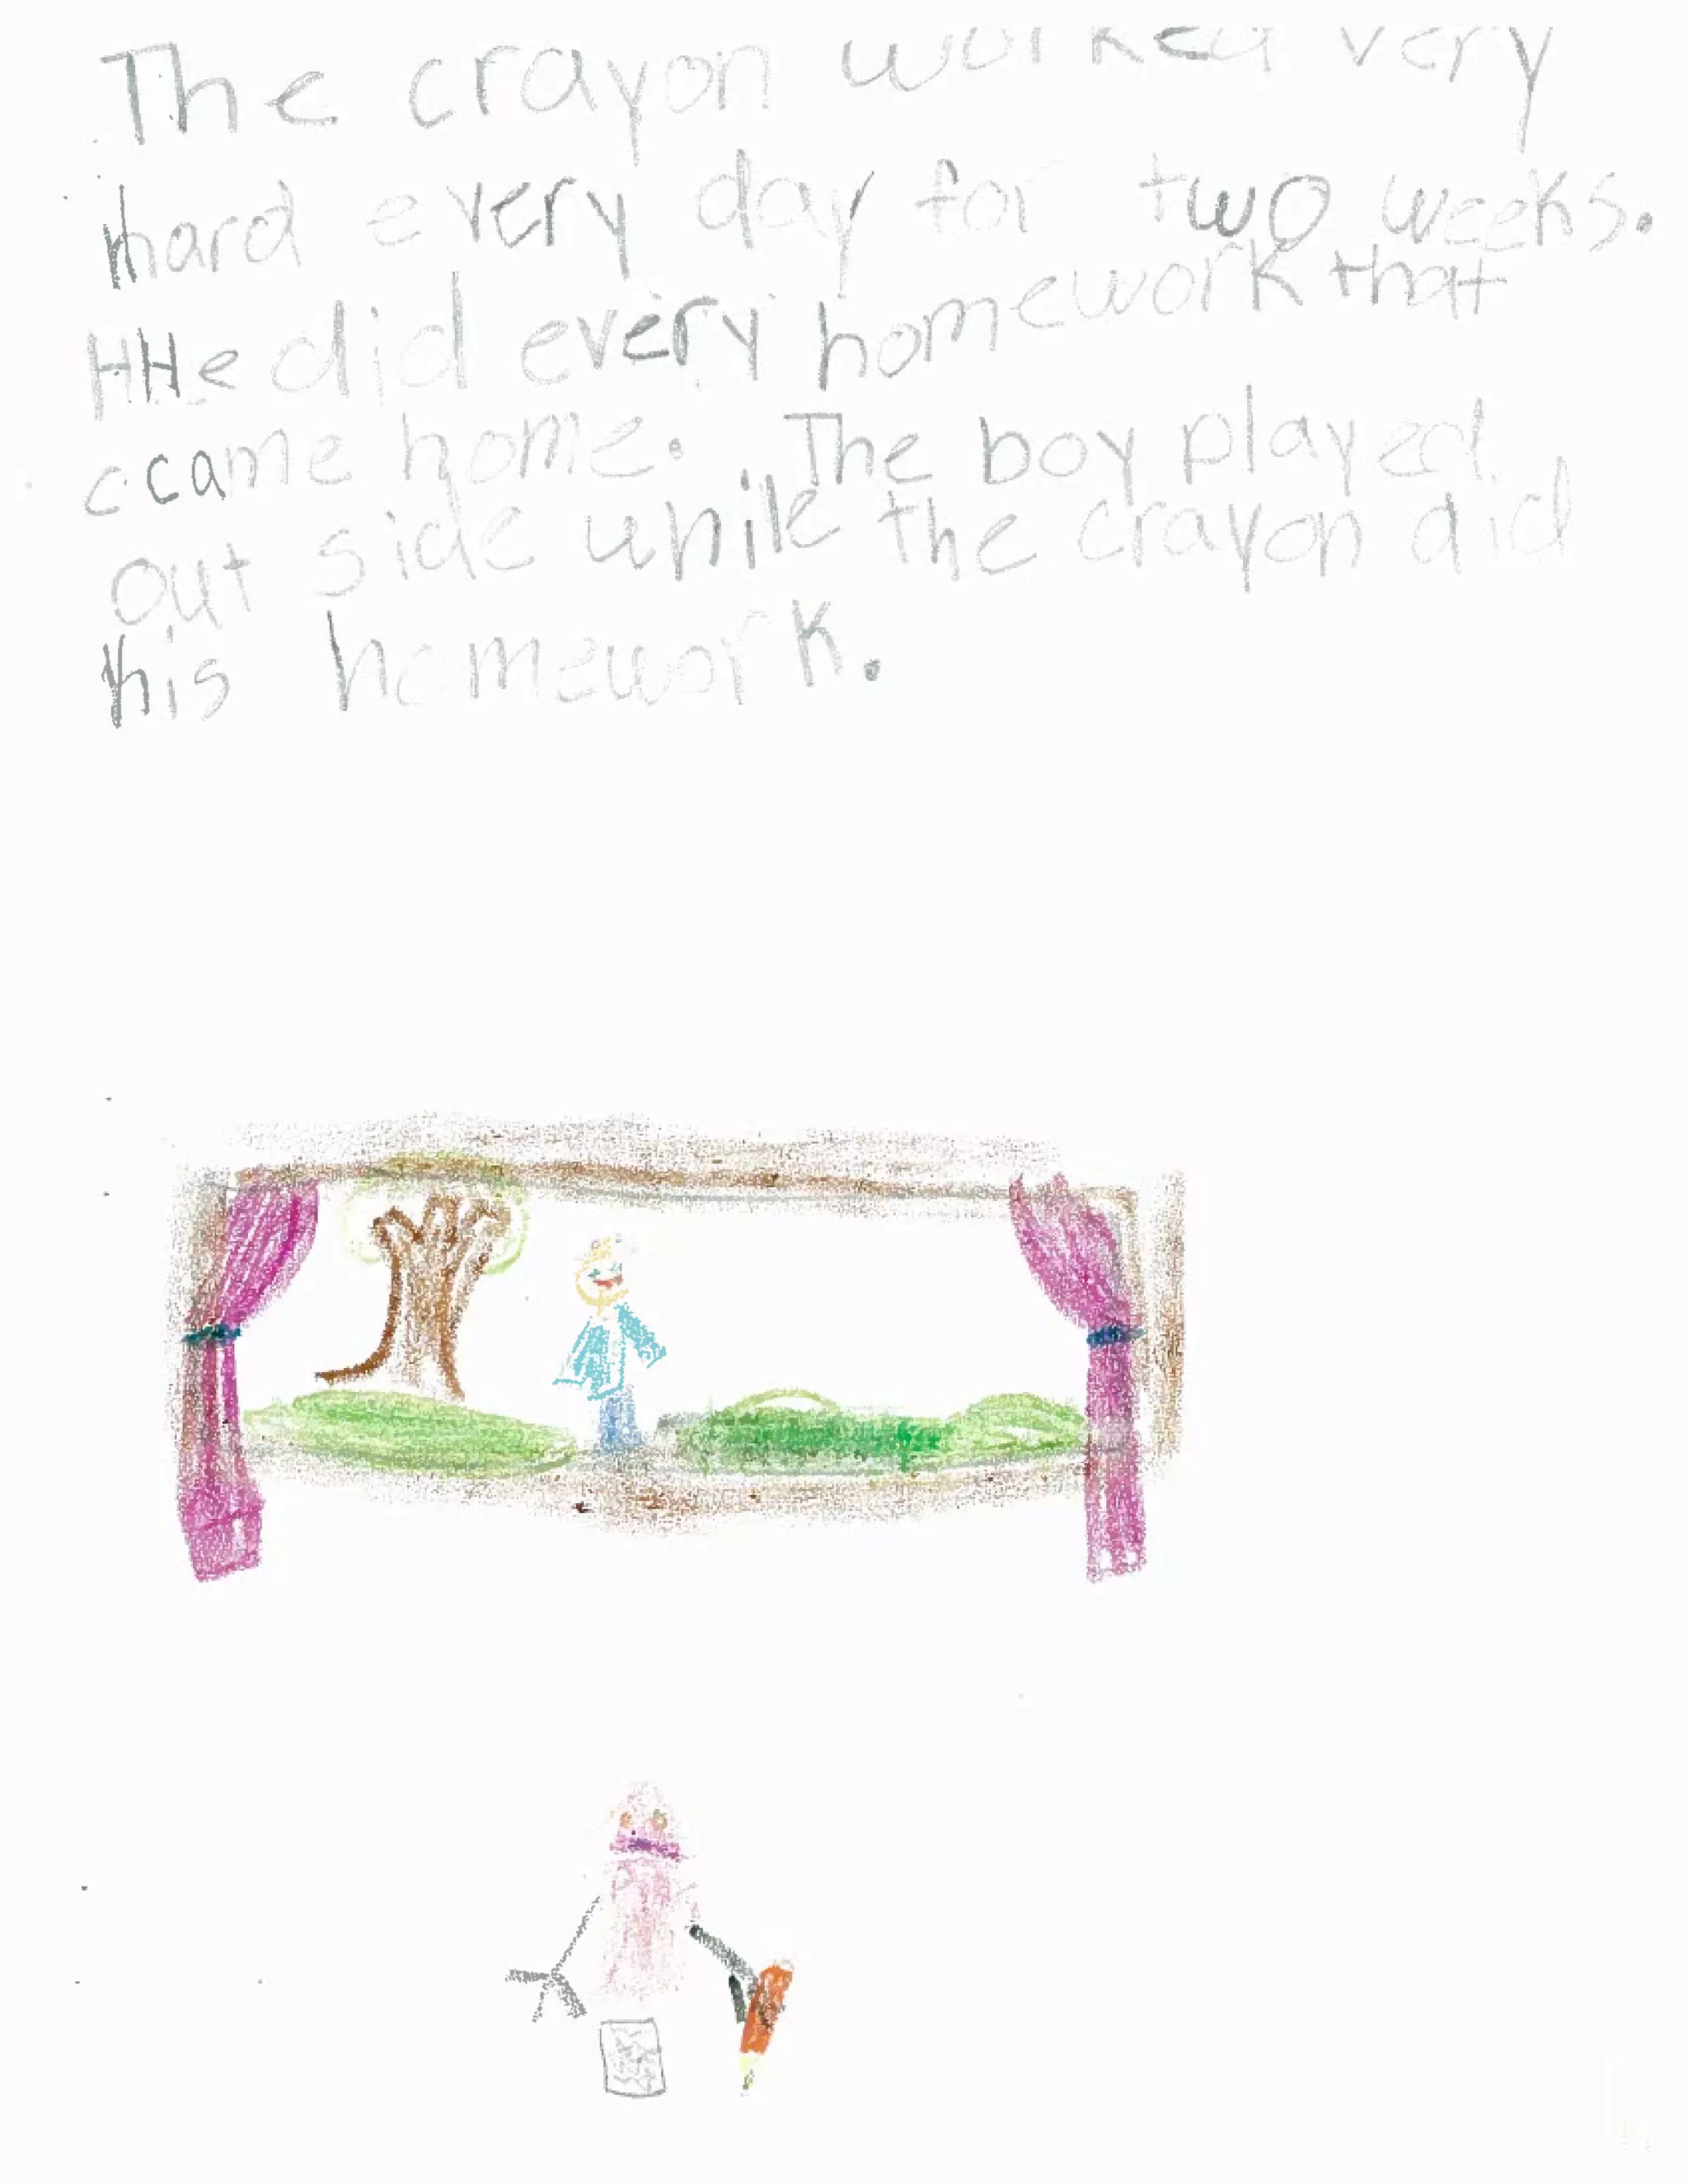 The crayon worked very
hard every day for two weeks.
HHe did every homework that
ccame home. The boy played
out side while the crayon did
his homework.